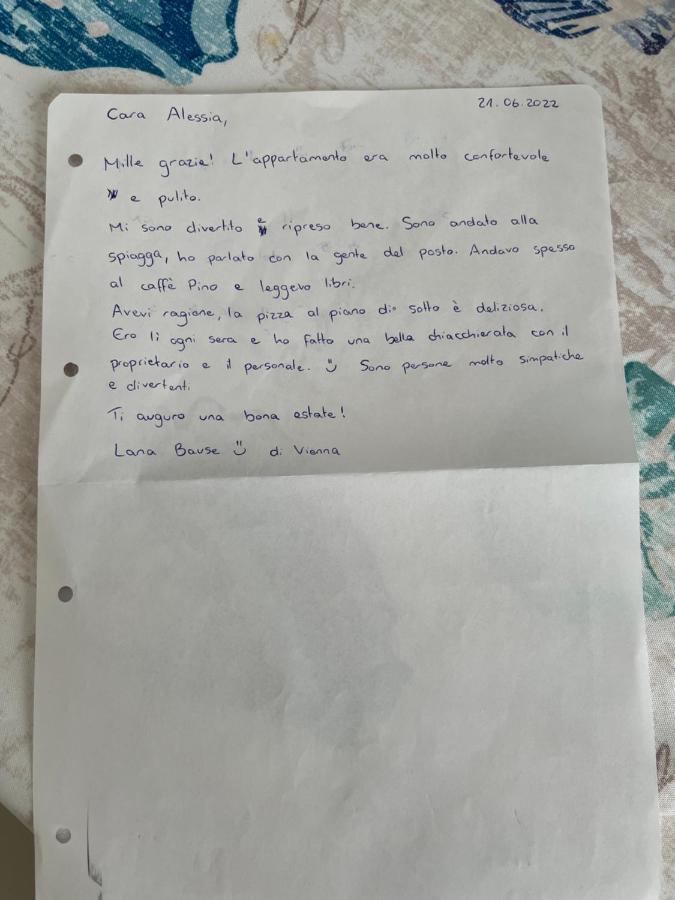 21.06.2022
Cara Alessia,
Mille grazie! L'appartamento era molto confortevole
e pulito.
Mi sono divertito e ripreso bene. Sono andato alla
spiagga, ho parlato con la gente del posto. Andavo spesso
al caffè Pino e leggevo libri.
Avevi ragione, la pizza al piano di sotto è deliziosa.
Ero lì ogni sera e ho fatto una bella chiacchierata con il
proprietario e il personale. Sono persone molto simpatiche
e divertenti
Ti auguro una bona estate!
Lana Bause di Vienna